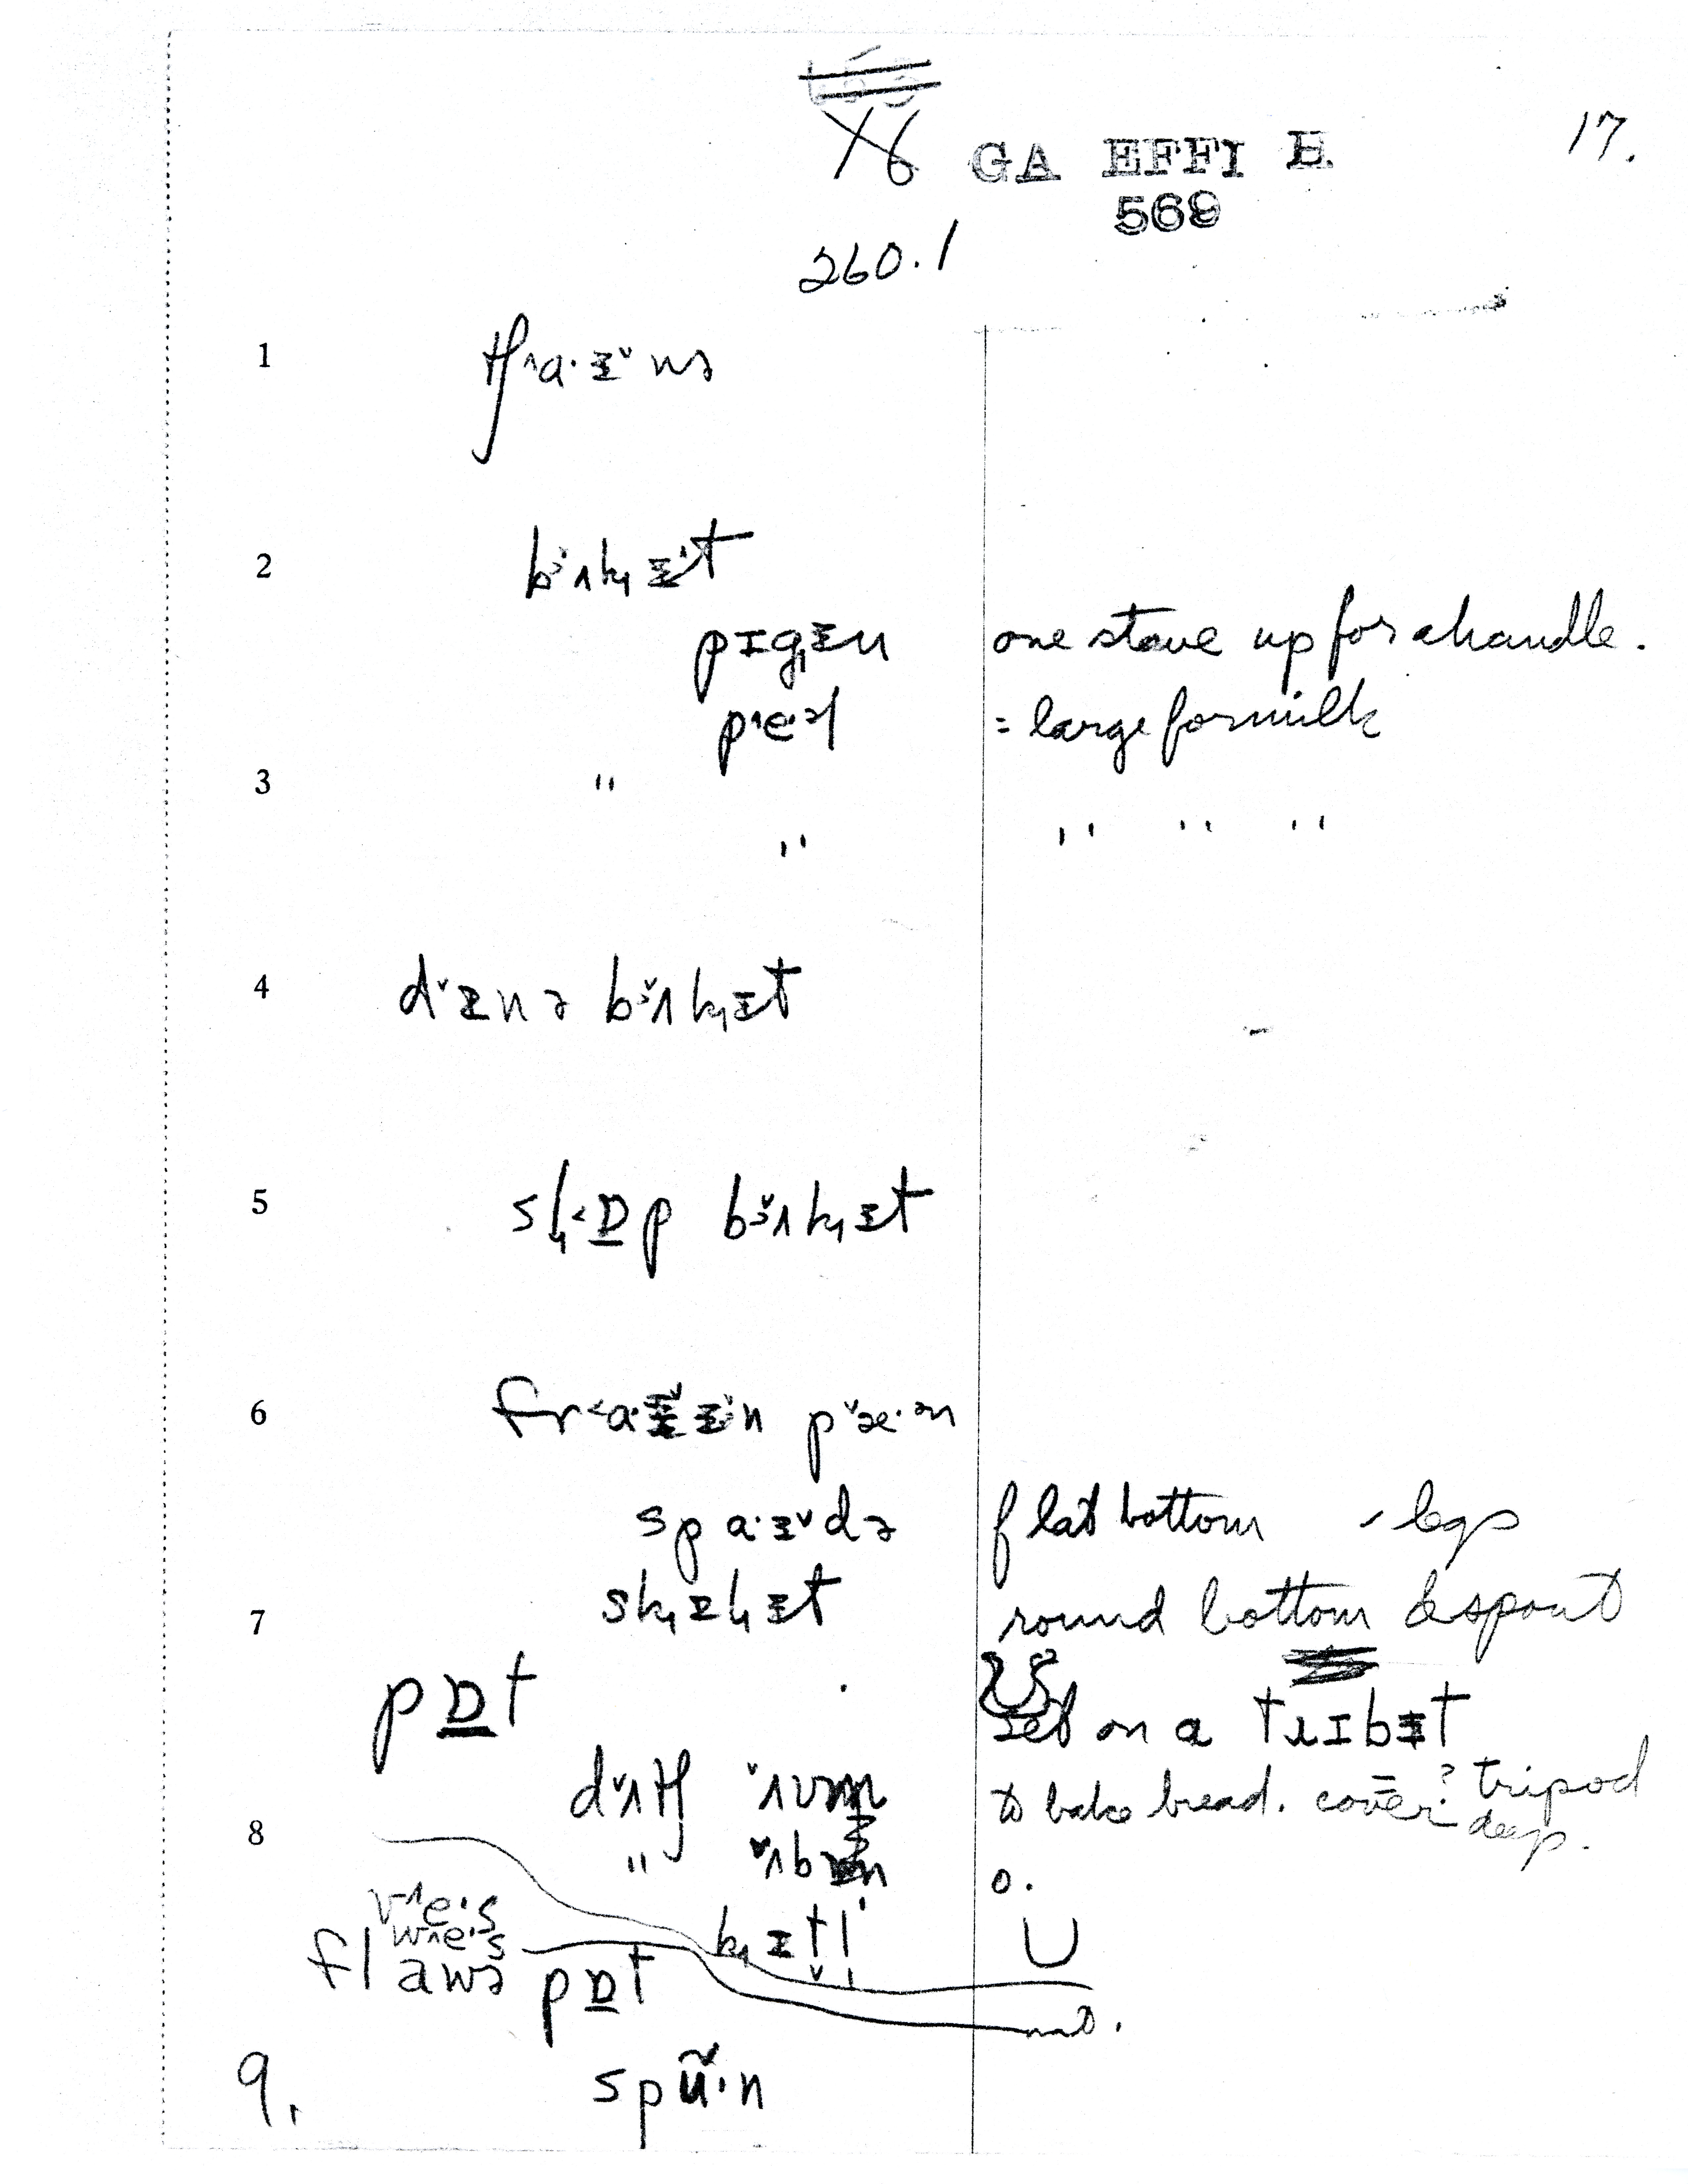 16
GA EFFI E
569
17.
260.1
1 tʃ˄a·ɪ˅nə
2 bɜ˅ʌkɪt
pɪgɪn one stave up for a handle.
p˄e·əl = large for milk
3 " 
" " " "
4 d˅ɪnə bɜ˅ʌkɪt
5 sk˂ɒp bɜ˅ʌkɪt
6 fr˂a·ɪ˅ɪn p˅æ·ən
spa·ɪ˅də flat bottom - legs
7 skɪkɪt round bottom & spout
pɒt set on a trɪbɪt
d˅ʌtʃ ˅ʌvən to bake bread. cover ? tripod
deep.
8 " ˅ʌbɪn o.
v˄e·s
w˄e·s kɪtl U
flawə pɒt nat.
9. spu·n